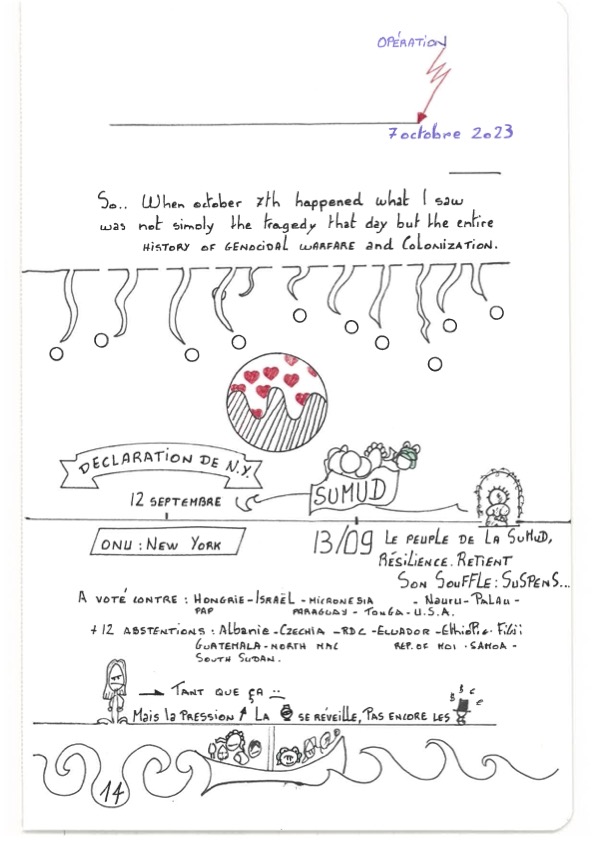 OPÉRATION
7 octobre 2023
So.. When october 7th happened what I saw
was not simply the tragedy that day but the entire
HISTORY OF GENOCIDAL WARFARE and COLONIZATION.
DECLARATION DE N.Y.
12 SEPTEMBRE
SUMUD
ONU : NEW YORK
13/09 LE PEUPLE DE LA SUMUD,
RÉSILIENCE. RETIENT
SON SOUFFLE : SUSPENS...
A VOTÉ CONTRE : HONGRIE - ISRAËL - MICRONESIA - NAURU - PALAU -
PAP PARAGUAY - TONGA - U.S.A.
+ 12 ABSTENTIONS : Albanie - CZECHIA - RDC - ECUADOR - EthioPie - Fidji
GUATEMALA - NORTH MAC REP. OF MOL - SAMOA -
SOUTH SUDAN.
TANT QUE ÇA
Mais la PRESSION LA SE RÉVEILLE, PAS ENCORE LES
$ $ € €
14